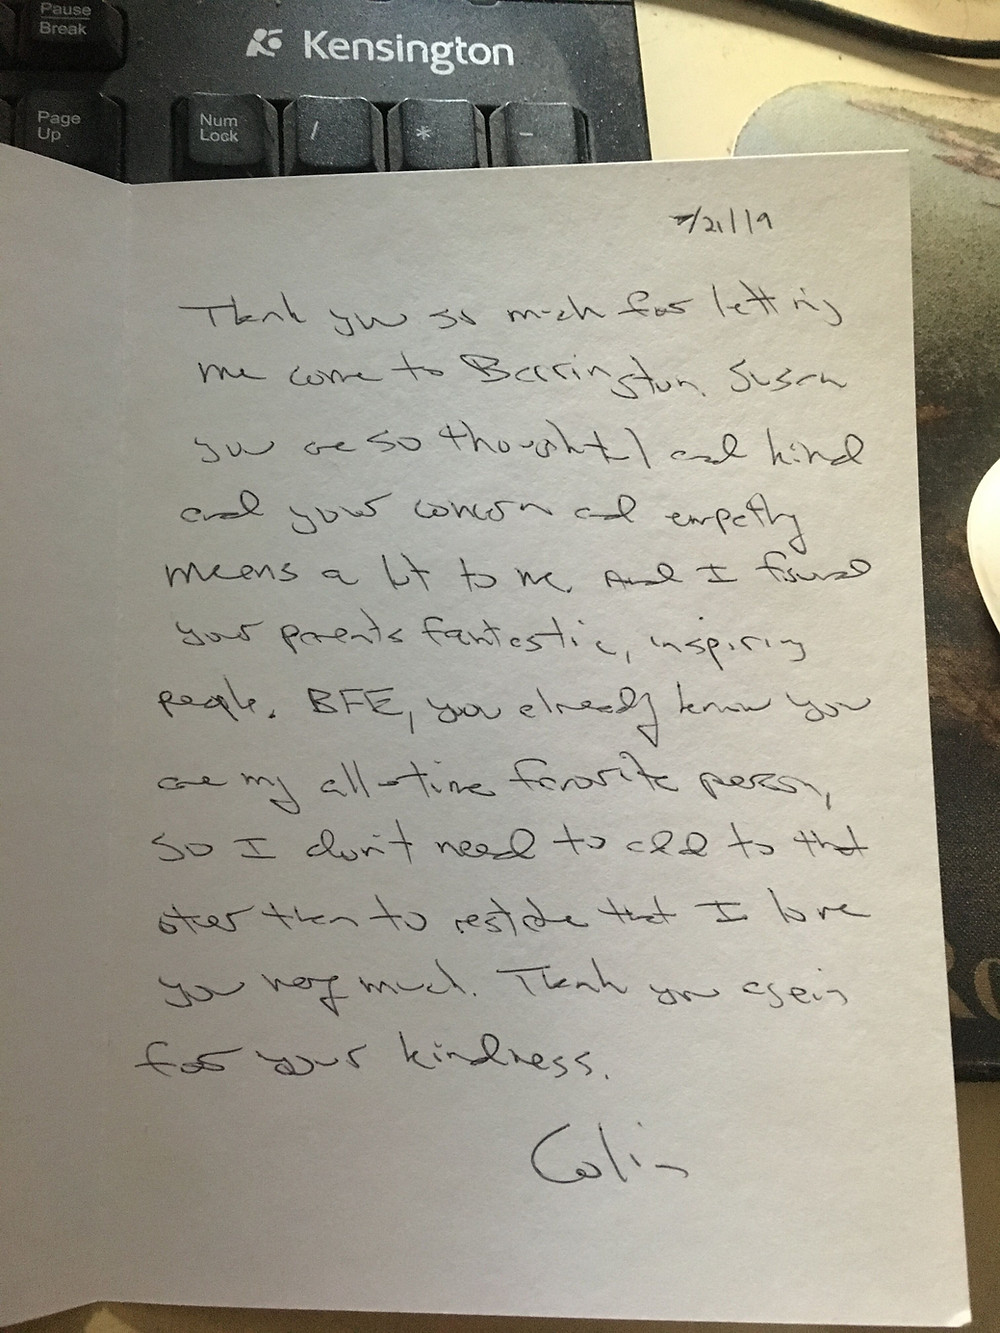 Pause
Break
Kensington
Page
Up
Num
Lock
/
*
-
7/21/19
Thank you so much for letting
me come to Barrington. Susan
you are so thoughtful and kind
and your concern and empathy
means a lot to me. And I found
your parents fantastic, inspiring
people. BFE, you already know you
are my all-time favorite person,
so I don't need to add to that
other than to restate that I love
you very much. Thank you again
for your kindness.
Colin